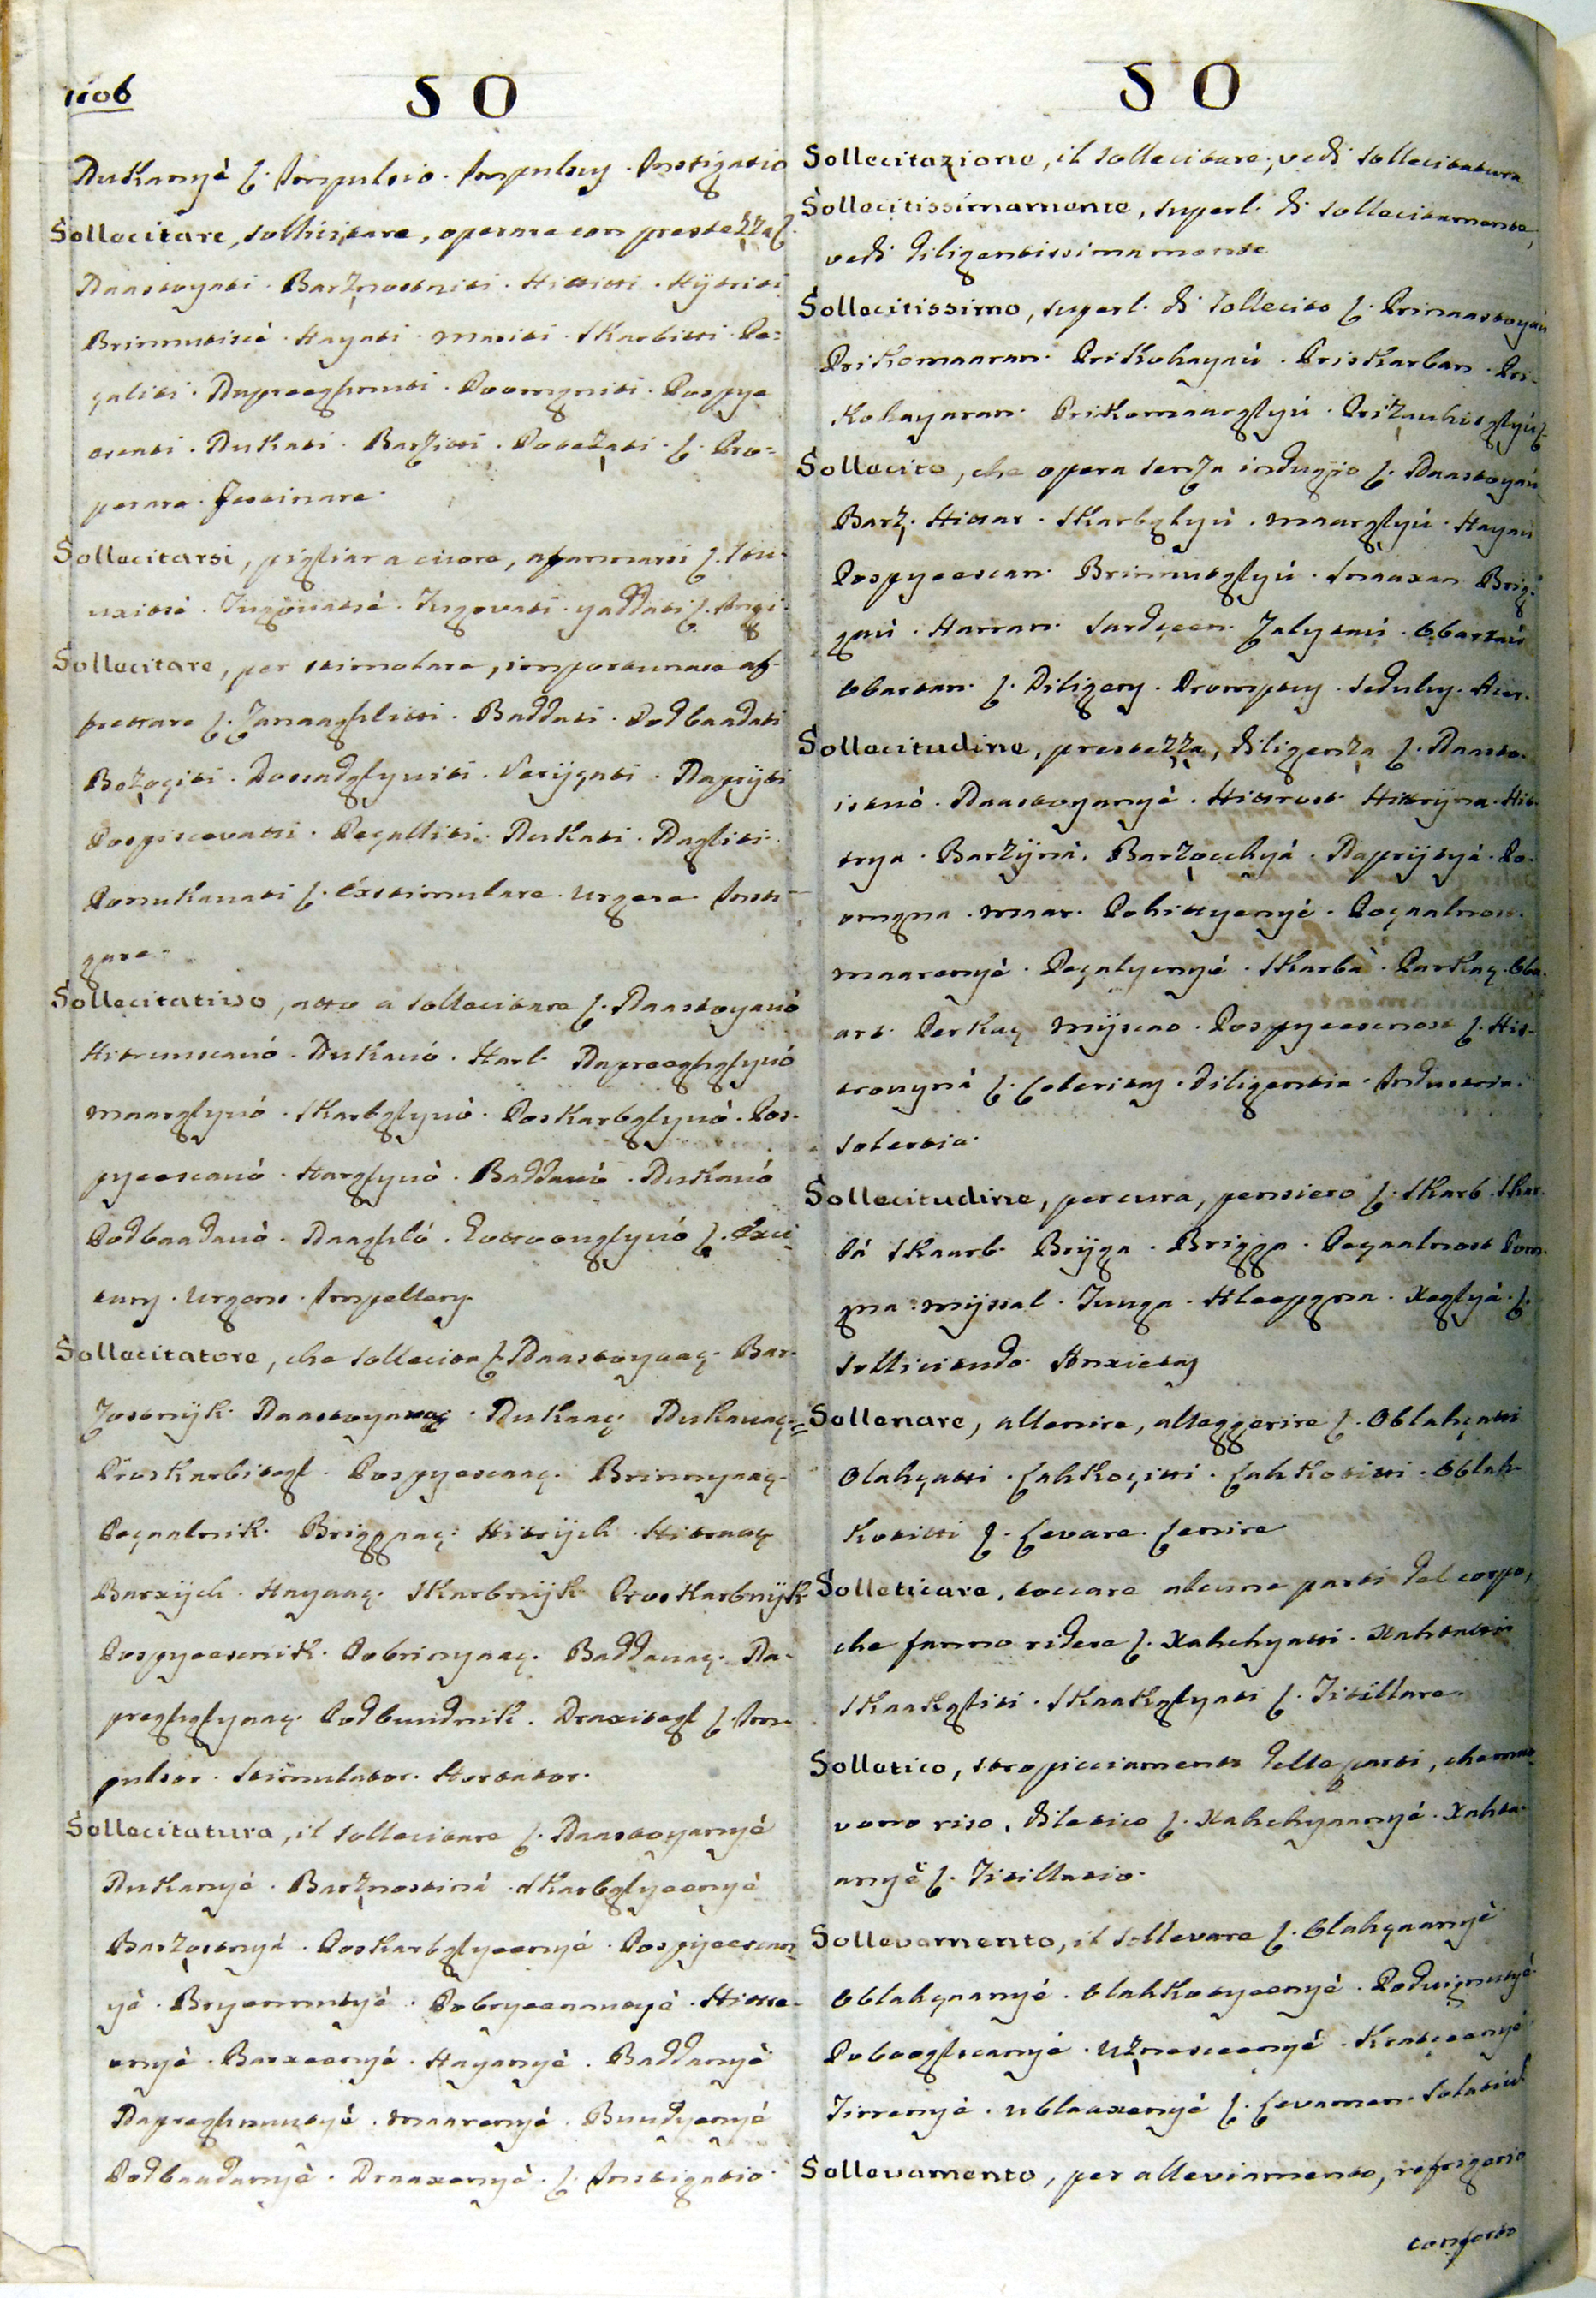 1106
SO
Dukanyè ʃ. Impulsio. Impulsus. Instigatio
Sollecitare, sollicitare, operare con prestezza ʃ.
Daastoyati. Barznostniti. Hititti. Hÿtriti
Brinnutisè. Hayati. Mariti. Skarbitti. Pe=
çaliti. Dupreeghnuti. Poomgniti. Pospye
scati. Dukati. Barzitti. Potezati. ʃ. Pro=
perare. Festinare.
Sollecitarsi, pigliar a cuore, afannarsi ʃ.
Tugovati. yaddati ʃ. Angi.
Sollecitare, per stimolare, importunare af-
frettare ʃ. Zanaaghlitti. Baddati. Podbaadati
Dosadglyuiti. Verÿgati. Daprÿti
Pospiscevatti. Peçalliti. Dukati. Dagliti.
Ponukauati ʃ. Exstimulare. Urgere. Insti-
gare.
Sollecitativo, atto a sollecitare ʃ. Daastoyauò
Hitrunscauò. Dukauò. Harl. Dapreeghglyuò
Maarglyuò. Skarbglyuò. Poskarbglyuò. Pos-
pyeescauò. Harglyuò. Baddauò. Dukauò
Podbaadauò. Naaghlò. ʃ. Exci-
tans. Urgens. Impellens.
Sollecitatore, che sollecita ʃ. Daastoyaaç. Bar-
zostnÿk. Daastoyavaç. Dukaaç. Dukauaç.
Proskarbitegl. Pospyescaaç. Brinnyaaç.
Peçaalnik. Briggnaç. Hitrÿch. Hitraaç
Barxÿch. Hayaaç. Skarbnÿk. Proskarbnÿk
Pospyeescnik. Pobrinyaaç. Baddauaç. Da-
preghglyuaç. Podbuudnik. Draxitegl ʃ. Im-
pulsor. Stimulator. Hortator.
Sollecitatura, il sollecitare ʃ. Daastoyanyè
Dukanyè. Barznostinà. Skarbglyeenyè
Barzostnyà. Poskarbglyeenyè. Pospyeescan
yè. Bryennutyè. Pobryeennutyè. Hitre-
enyè. Barxeenyè. Hayanyè. Baddanyè
Dapreghnuutyè. Maarenyè. Buudyenyè
Podbaadanyè. Draaxenyè. ʃ. Instigatio.
SO
Sollecitazione, il sollecitare; vedi sollecitatura
Sollecitissimamente, superl. di sollecitamente,
vedi diligentissimamente
Sollecitissimo, superl. di sollecito ʃ. Prinaastoyaù
Prikomaaran. Prikohayaù. Priskarban. Pri-
kohayaran. Prikomaarglyù.
Sollecito, che opera senza indugio ʃ. Daastoyaù
Barz. Hitar. Skarbglyù. Maarglyù. Hayaù
Pospyeescan. Brinnutglyù. Snaaxan. Brig-
gaù. Harran. Sardçeen. Zalytaù. Obartaù
Obartan. ʃ. Diligens. Promptus. Sedulus. Acer.
Sollecitudine, prestezza, diligenza ʃ. Daasto-
istuò. Daastoyanyè. Hitrost. Hitrÿna. Hit-
trya. Barzÿnà. Barzocchyà. Daprÿtyà. Po-
omgna. Maar. Pohittyenyè. Peçaalnost.
Maarenyè. Peçalyenyè. Skarbà. Parkaç. Oba-
art. Perkaç. Mÿscao. Pospyeescnost ʃ. Hit-
trouynà ʃ. Celeritas. Diligentia. Industria.
Solertia.
Sollecitudine, per cura, pensiero ʃ. Skarb. Skar-
bà. Skaarb. Brÿga. Brigga. Peçaalnost. Pom-
gna. Mÿsal. Tuuga. Hleepgna. Xeglyà. ʃ.
Sollicitudo. Anxietas
Sollenare, allenire, alleggerire ʃ. Oblahçatti
Olahçatti. Lahkoçitti. Lahkotitti. Oblah-
kotitti ʃ. Levare. Lenire
Solleticare, toccare alcune parti del corpo,
che fanno ridere ʃ. Xahchyatti. Xahtatti
Skaakgliti. Skaakglyati ʃ. Titillare.
Solletico, stropicciamento delle parti, che mo
vono riso, diletico ʃ. Xahchyaanyè. Xahta-
anyè ʃ. Titillatio.
Sollevamento, il sollevare ʃ. Olahçaanyè
Oblahçaanyè. Olahkotyeenyè. Poduignutyè
Poboogliscanyè. Uznesceenyè. Kratçeenyè
Tirrenyè. Ublaaxenyè ʃ. Levamen. Solatiu.
Sollevamento, per alleviamento, refrigerio
conforto